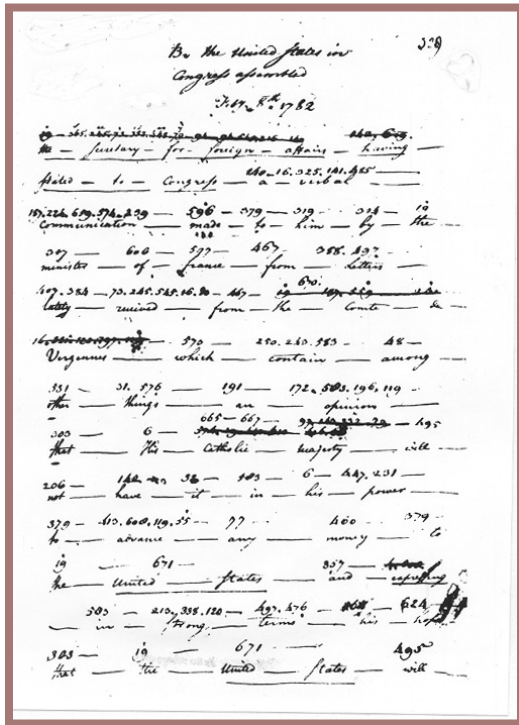 By the United States in
Congress assembled
1782
the — Secretary — for — foreign — affairs — having
240-16.325.141.485
stated — to — Congress — a — verbal
596 — 379 — 319 — 324 — 19
Communication — made — to — him — by — the
307 — 606 — 597 — 467 388.497
minister — of — france — from — Letters
607.384 — 73.245.545.16.90 — 467
lately — received — from — the — Comte — de
570 — 250.240.583 — 48
Vergennes — which — contain — among
331 31.576 — 191 — 172.503.196.119
other — things — an — opinion
665-667
303 — 6 — 495
that — His — Catholic — majesty — will
206 36 — 6 — 447.231
not — have — it — in — his — power
379 — 413.608.119.55 — 77 460 379
to — advance — any — money — to
19 671 357
the — United — States — and — expressing
503 — 213.338.120 — 497.476 624
in — strong — terms — his — hope
303 — 19 — 671 495
that — the — United — States — will